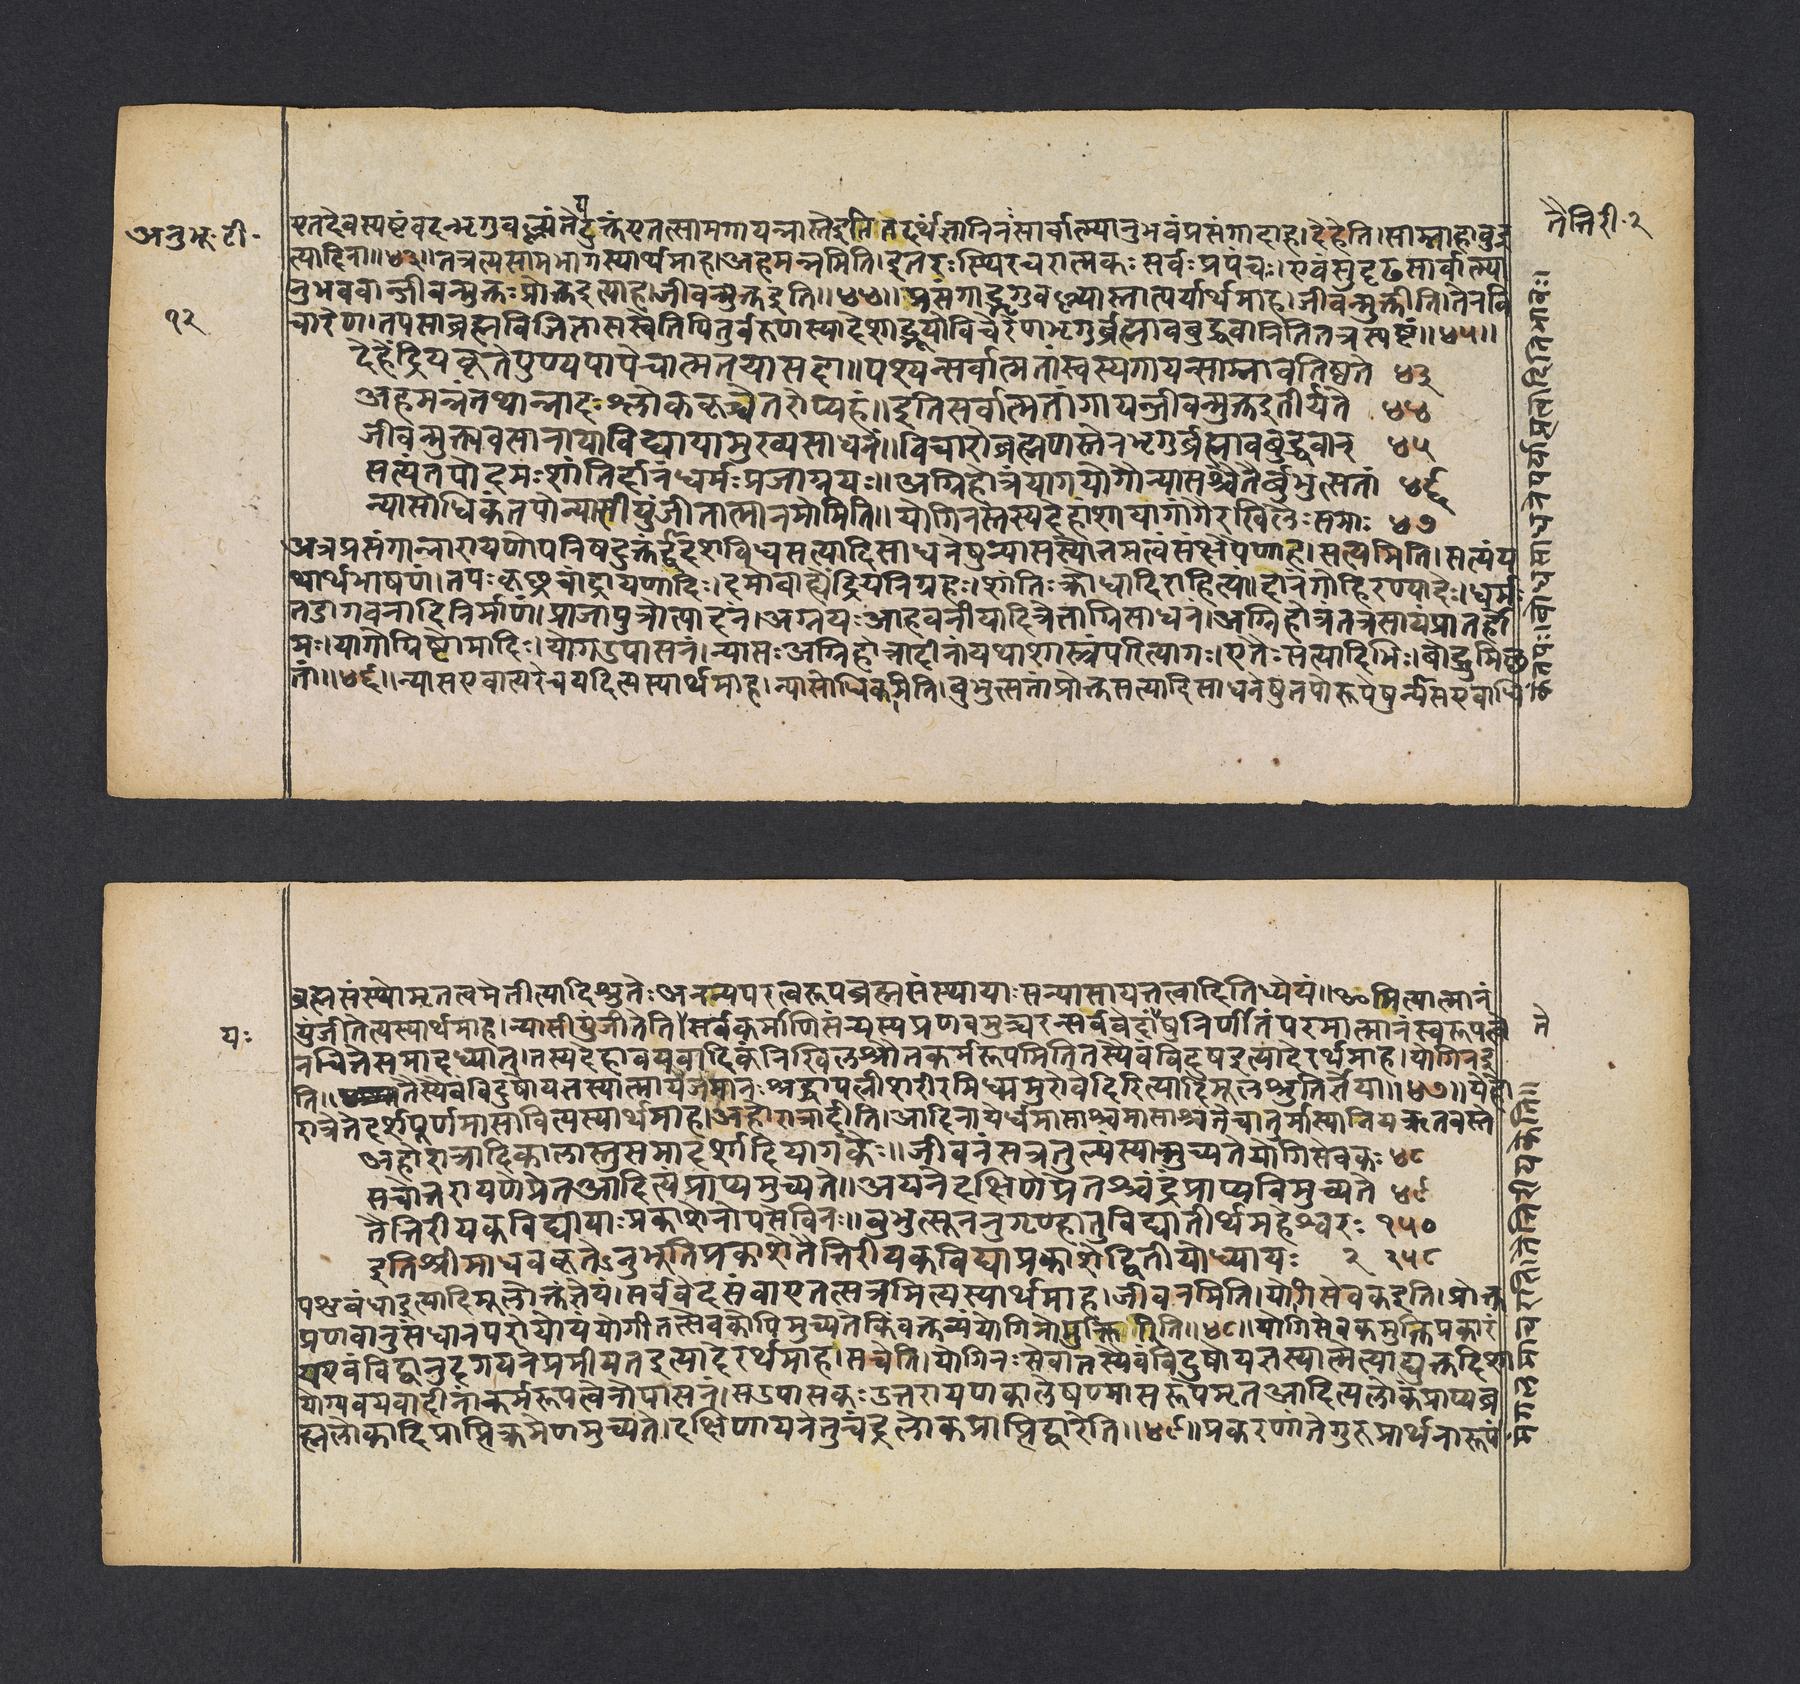 अनुभू॰टी॰
१२
तैत्तिरी॰२
एतदेवस्पष्टंवदन्भृगुवल्ल्यंतेयदुक्तंएतत्सामगायन्नास्तेइतितदर्थंज्ञानिनंसार्वात्म्यानुभवंप्रसंगादाह।देहेति।साम्नाहावुइ
त्यादिना॥४३॥तत्रत्यसामभागस्यार्थमाह।अहमन्नमिति।इतरःस्थिरचरात्मकःसर्वःप्रपंचः।एवंसुदृढसार्वात्म्या
नुभववान्जीवन्मुक्तःप्रोक्तइत्याह।जीवन्मुक्तइति॥४४॥प्रसंगाद्भृगुवल्ल्यास्तात्पर्यार्थमाह।जीवन्मुक्तीति।तेनवि
चारेण।तपसाब्रह्मविजिज्ञासस्वेतिपितुर्वरुणस्यादेशाद्भूयोविचारेणभृगुर्ब्रह्मावबुद्धवानितितत्रस्पष्टं॥४५॥
देहेंद्रियकृतेपुण्यपापेचात्मतयासदा॥पश्यन्सर्वात्मतांस्वस्यगायन्साम्नावतिष्ठते ४३
अहमन्नंतथान्नादःश्लोककृच्चेतरोप्यहं॥इतिसर्वात्मतांगायन्जीवन्मुक्तइतीर्यते ४४
जीवन्मुक्त्यवसानायाविद्यायामुख्यसाधनं॥विचारोब्रह्मणस्तेनभृगुर्ब्रह्मावबुद्धवान् ४५
सत्यंतपोदमःशांतिर्दानंधर्मःप्रजाग्नयः॥अग्निहोत्रंयागयोगौन्यासश्चैतैर्बुभुत्सतां ४६
न्यासोधिकंतपोन्यासीयुंजीतात्मानमोमिति॥योगिनस्तस्यदेहांशायागांगैरखिलैःसमाः ४७
अत्रप्रसंगान्नारायणोपनिषदुक्तंद्वादशविधसत्यादिसाधनेषुन्यासस्योत्तमत्वंसंक्षेपेणाह।सत्यमिति।सत्यंय
थार्थभाषणं।तपःकृछ्रचांद्रायणादि।दमोबाह्येंद्रियनिग्रहः।शांतिःक्रोधादिराहित्यं।दानंगोहिरण्यादेः।धर्मः
तडागवनादिनिर्माणं।प्रजापुत्रोत्पादनं।अग्नयःआहवनीयादित्रेताग्निसाधनं।अग्निहोत्रंतत्रसायंप्रातर्हो
मः।यागोग्निष्टोमादिः।योगउपासनं।न्यासःअग्निहोत्रादीनांयथाशास्त्रंपरित्यागः।एतैःसत्यादिभिः।बोद्धुमिछ
तां॥४६॥न्यासएवात्यरेचयदित्यस्यार्थमाह।न्यासोधिकमिति।बुभुत्सतांप्रोक्तसत्यादिसाधनेषुतपोरूपेषुन्यासएवाधि
यः
तै
ब्रह्मसंस्थोमृतत्वमेतीत्यादिश्रुतेःअनन्यपरत्वरूपब्रह्मसंस्थायाःसन्यासायत्तत्वादितिध्येयं॥ॐमित्यात्मानं
युंजीतेत्यस्यार्थमाह।न्यासीयुंजीतेति।सर्वकर्माणिसंन्यस्यप्रणवमुच्चरन्सर्ववेदांतेषुनिर्णीतंपरमात्मानंस्वरूपत्वे
नचित्तेसमादध्यात्।तस्यदेहावयवादिकंनिखिलश्रौतकर्मरूपमितितस्यैवंविदुषइत्यादेरर्थमाह।योगिनइ
ति।तस्यैवंविदुषोयज्ञस्यात्मायजमानःश्रद्धापत्नीशरीरमिध्ममुरोवेदिरित्यादिमूलश्रुतिर्ज्ञेया॥४७॥येहो
रात्रेतेदर्शपूर्णमासावित्यस्यार्थमाह।अहोरात्रादीति।आदिनायेर्धमासाश्चमासाश्चतेचातुर्मास्यानियऋतवस्ते
अहोरात्रादिकालास्तुसमादर्शादियागकैः॥जीवनंसत्रतुल्यंस्यान्मुच्यतेयोगिसेवकः ४८
सचोत्तरायणेप्रेतआदित्यंप्राप्यमुच्यते॥अयनेदक्षिणेप्रेतश्चंद्रंप्राप्यविमुच्यते ४९
तैत्तिरीयकविद्यायाःप्रकाशेनोपसेविनः॥बुभुत्सूननुगृण्हातुविद्यातीर्थमहेश्वरः १५०
इतिश्रीमाधवकृतेऽनुभूतिप्रकाशेतैत्तिरीयकविद्याप्रकाशोद्वितीयोध्यायः २ २५८
पशुबंधाइत्यादिमूलोक्तंज्ञेयं।सर्ववेदसंवाएतत्सत्रमित्यस्यार्थमाह।जीवनमिति।योगिसेवकइति।प्रोक्त
प्रणवानुसंधानपरोयोययोगीतत्सेवकोपिमुच्यतेकिंवक्तव्यंयोगिनोमुक्तिरिति॥४८॥योगिसेवकमुक्तिप्रकारं
यएवंविद्वानुदगयनेप्रमीयतइत्यादेरर्थमाह।सचेति।योगिनःसेवातस्यैवंविदुषोयज्ञस्यात्मेत्याद्युक्तदिशा
योग्यवयवादीनांकर्मरूपत्वेनोपासनं।सउपासकःउत्तरायणकालेषण्मासरूपेमृतआदित्यलोकंप्राप्यब्र
ह्मलोकादिप्राप्तिक्रमेणमुच्यते।दक्षिणायनेतुचंद्रलोकप्राप्तिद्वारेति॥४९॥प्रकरणांतेगुरुप्रार्थनारूपं